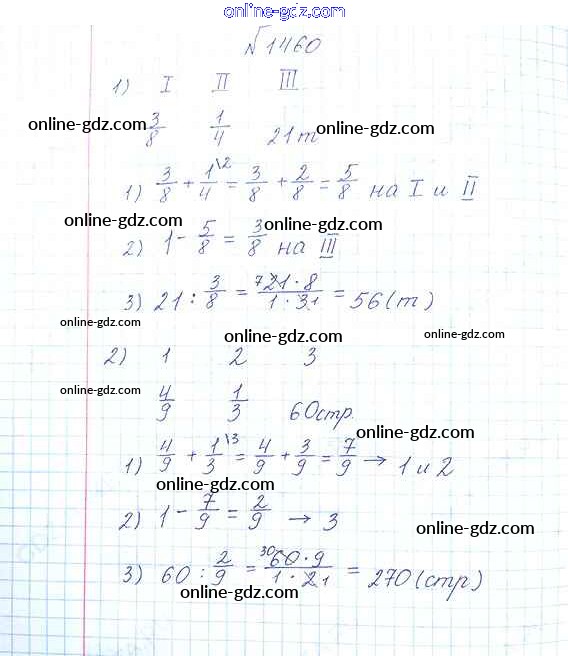 online-gdz.com
№1460
1) I II III
online-gdz.com 3/8 1/4 21 т online-gdz.com
1) 3/8 + 1\2/4 = 3/8 + 2/8 = 5/8 на I и II
online-gdz.com online-gdz.com
2) 1 - 5/8 = 3/8 на III
3) 21 : 3/8 = 7 21 · 8/1 · 3 1 = 56 (т)
online-gdz.com online-gdz.com
online-gdz.com
2) 1 2 3
online-gdz.com online-gdz.com
4/9 1/3 60 стр.
online-gdz.com
1) 4/9 + 1\3/3 = 4/9 + 3/9 = 7/9 → 1 и 2
online-gdz.com
2) 1 - 7/9 = 2/9 → 3
online-gdz.com
3) 60 : 2/9 = 30 60 · 9/1 · 2 1 = 270 (стр)
online-gdz.com